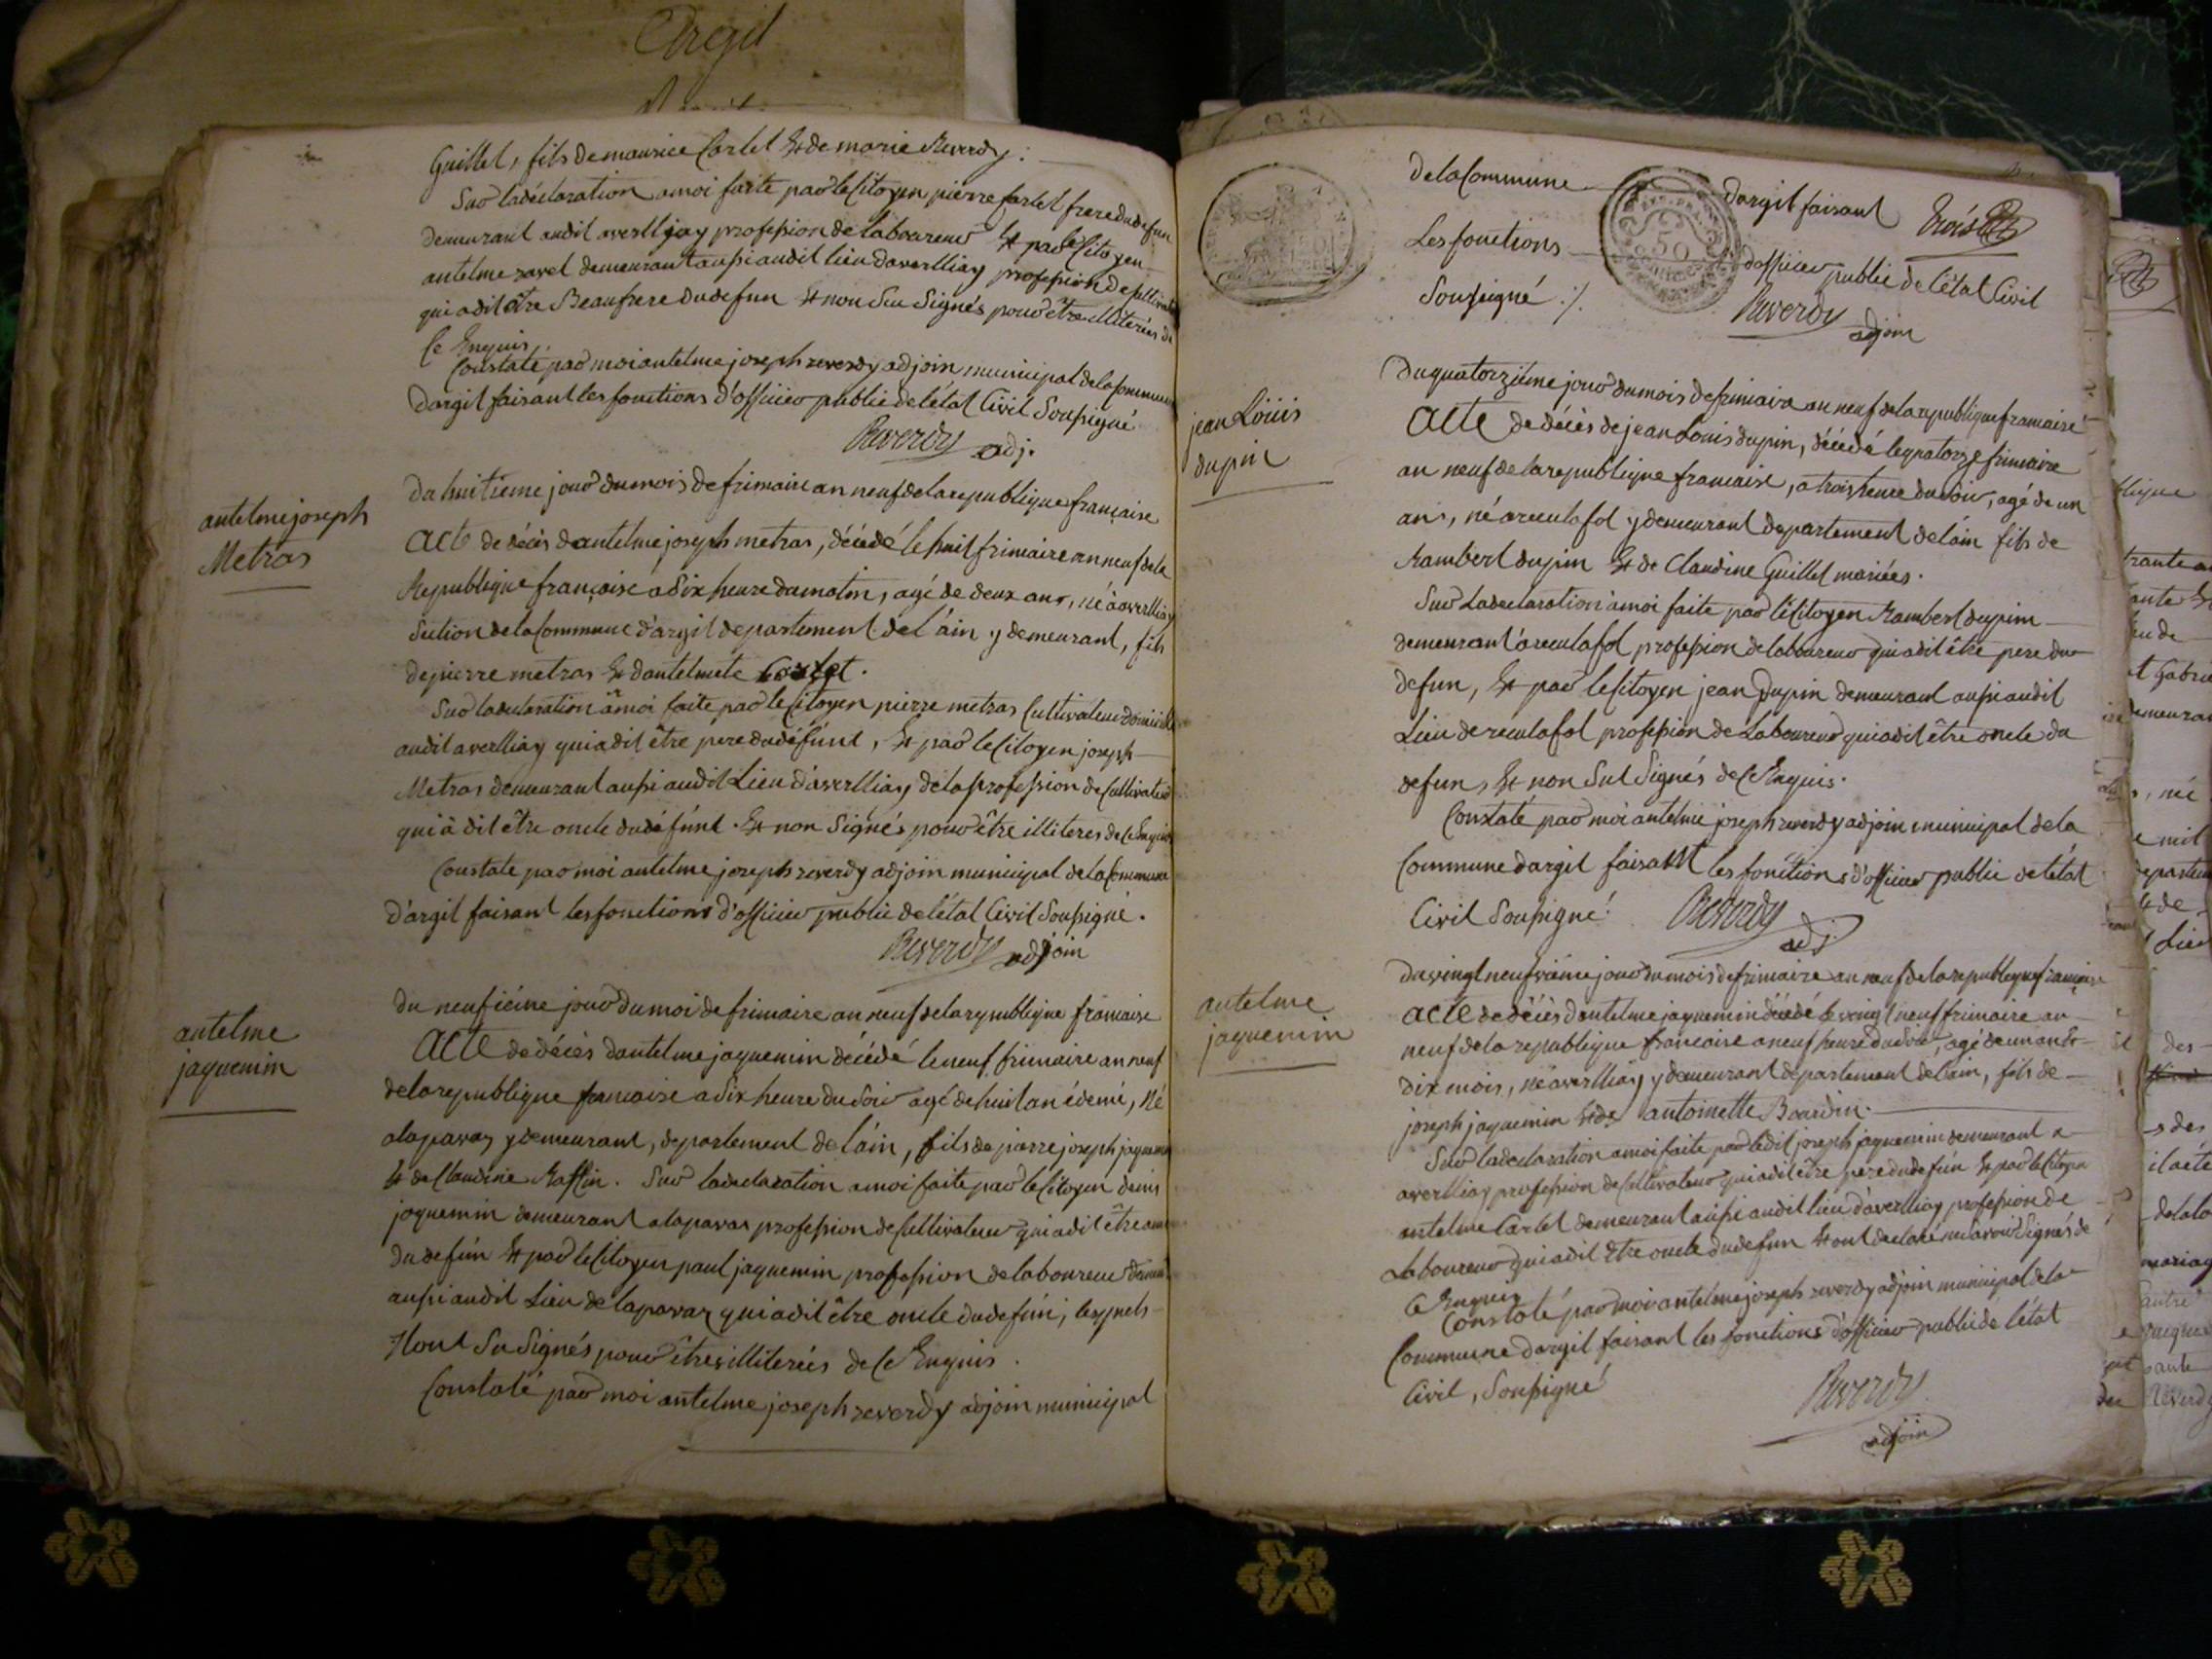 Argil
Guillet, fils de maurice Carlet & de marie Reverdy.
Sur la déclaration a moi faite par le Citoyen pierre Carlet frere du defun
demeurant audit averlliay profession de laboureur & par le Citoyen
antelme ravet demeurant aussi audit lieu daverlliay profession de Cultivateur
qui a dit être Beaufrere du defun & non Su Signés pour être illiterées de
Ce Enquis
Constaté par moi antelme joseph reverdy adjoin municipal de la Commune
dargil faisant les fonctions d'officier public de létat Civil Soussigné
Reverdy adj.
antelme joseph
Metras
Du huitieme jour du mois de frimaire an neuf de la republique française
Acte de décès dantelme joseph metras, décédé le huit frimaire an neuf de la
Republique française a Dix heure du matin, agé de deux ans, né a averlliay
Section de la Commune d'argil departement de l'áin y demeurant, fils
de pierre metras & dantelmete Carlet.
Sur la declaration a moi faite par le Citoyen pierre metras Cultivateur domicilié
audit averlliay qui a dit être pere du défúnt, & par le Citoyen joseph
Metras demeurant aussi audit Lieu d'averlliay de la profession de Cultivateur
qui à dit être oncle du défúnt. & non Signés pour être illiteres de Ce Enquis
Constate par moi antelme joseph reverdy adjoin municipal de la Commune
d'argil faisant les fonctions d'officier public de létat Civil Soussigné.
Reverdy adjoin
antelme
jaquemin
du neufieme jour du moi de frimaire an neuf de la republique francaise
Acte de décès dantelme jaquemin décédé le neuf frimaire an neuf
de la republique francaise a Six heure du Soir agé de huit an é demi, Né
a laparay y demeurant, departement de láin, fils de pierre joseph jaquemin
& de Claudine Raffin. Sur la declaration a moi faite par le Citoyen denis
jaquemin demeurant a laparay profession de Cultivateur qui a dit être
du defún & par le Citoyen paul jaquemin profession de laboureur demeurant
aussi audit Lieu de laparay qui a dit être oncle du defún, lesquels
Nont Su Signés pour être illiterées de Ce Enquis.
Constaté par moi antelme joseph reverdy adjoin municipal
de la Commune dargil faisant trois
Les fonctions dofficier public de létat Civil
Soussigné ./. Reverdy
adjoin
50
jean Loüis
dupin
Du quatorzième jour du mois de frimaire an neuf de la republique francaise
Acte de décès de jean Louis dupin, décédé le quatorze frimaire
an neuf de la republique francaise, a trois heure du Soir, agé de un
ans, né a reculafol y demeurant departement de láin fils de
Rambert dupin & de Claudine Guillet mariées.
Sur La declaration a moi faite par le Citoyen Rambert dupin
demeurant a reculafol profession de laboureur qui a dit être pere du
defun, & par le Citoyen jean Dupin demeurant aussi audit
Lieu de reculafol profession de Laboureur qui a dit être oncle du
defun, & non Sut Signés de Ce Enquis.
Constaté par moi antelme joseph reverdy adjoin municipal de la
Commune dargil faisant les fonctions d'officier public de létat
Civil Soussigné. Reverdy
adj.
antelme
jaquemin
du vingt neufvième jour du mois de frimaire an neuf de la republique francaise
Acte de décès dantelme jaquemin décédé le vingt neuf frimaire an
neuf de la republique francaise a neuf heure du Soir, agé de un an &
dix mois, né a averlliay y demeurant departement de lain, fils de
joseph jaquemin & de antoinette Bourdin.
Sur la declaration a moi faite par ledit joseph jaquemin demeurant a
averlliay profession de Cultivateur qui a dit être pere du defún & par le Citoyen
antelme Carlet demeurant aussi audit lieu d'averlliay profession de
Laboureur qui a dit être oncle du defun & ont declaré ne Savoir Signés de
Ce Enquis
Constaté par moi antelme joseph reverdy adjoin municipal de la
Commune dargil faisant les fonctions d'officier public de létat
Civil, Soussigné
Reverdy
adjoin